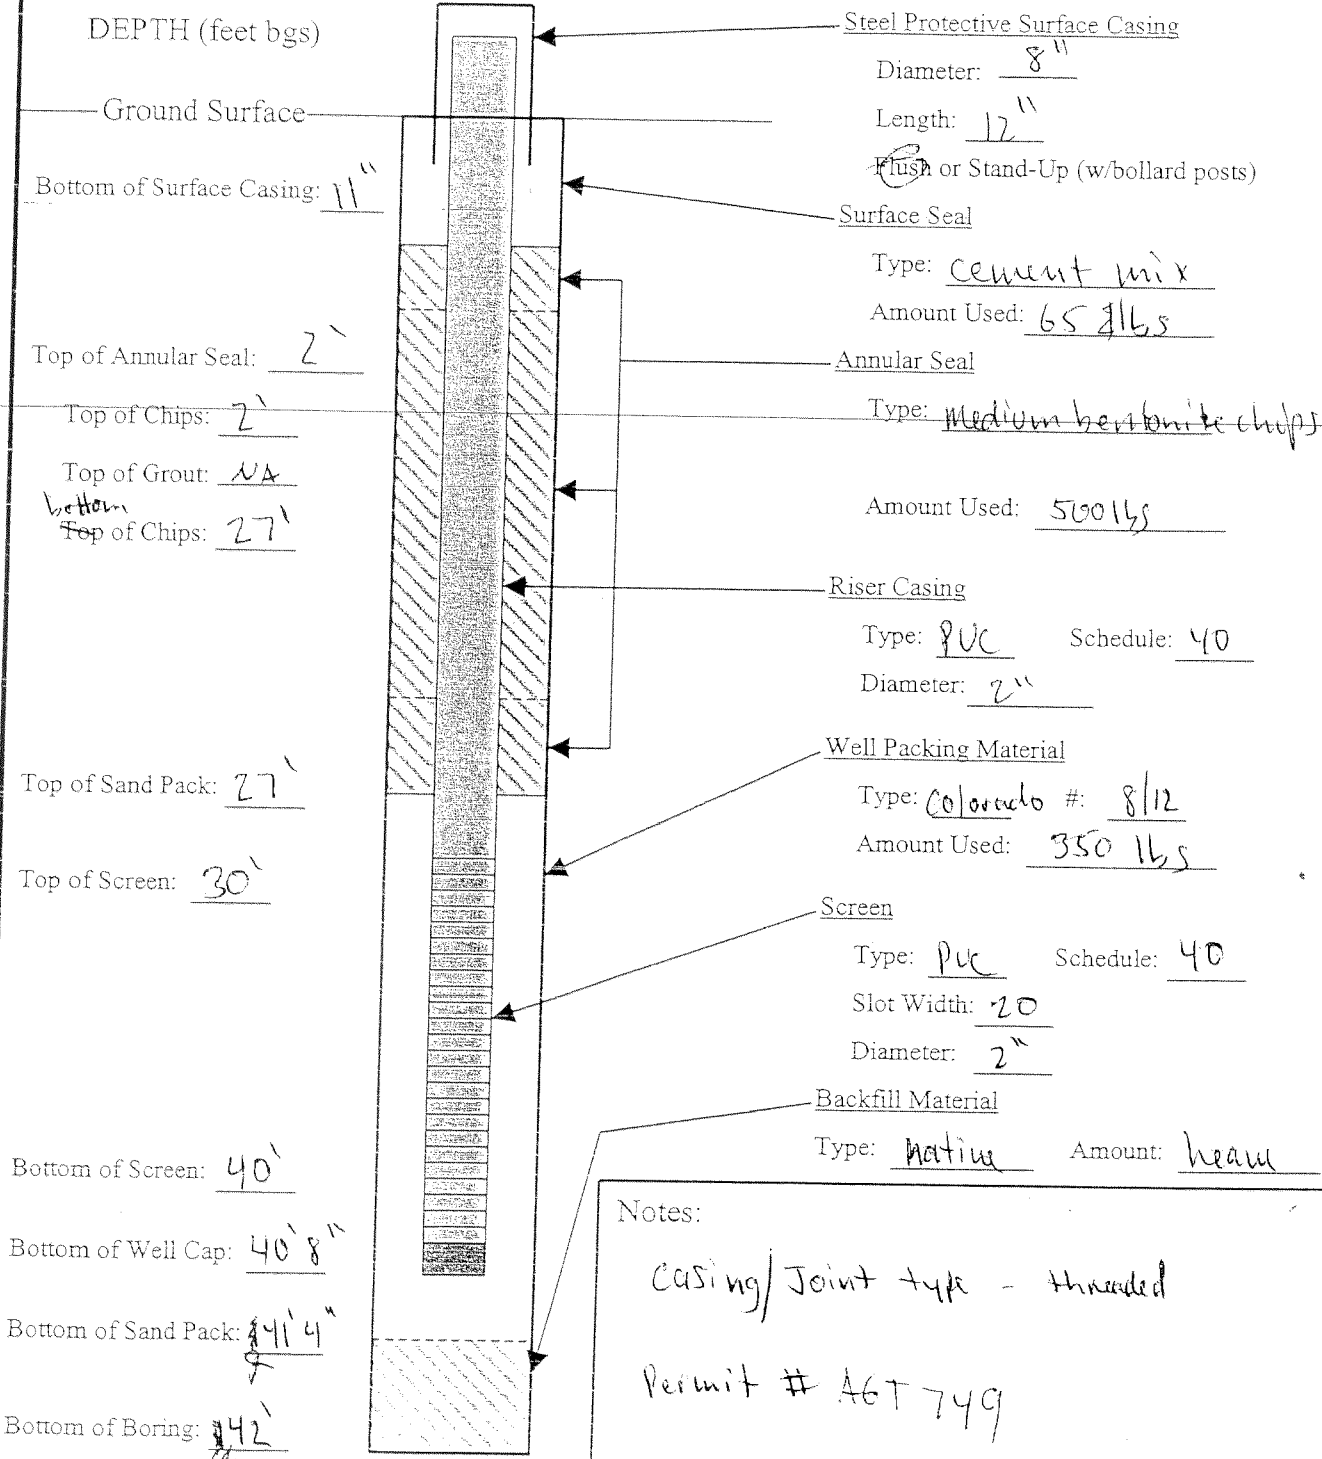 DEPTH (feet bgs)
Ground Surface
Bottom of Surface Casing: 11"
Top of Annular Seal: 2'
Top of Chips: 2'
Top of Grout: NA
bottom
Top of Chips: 27'
Top of Sand Pack: 27'
Top of Screen: 30'
Bottom of Screen: 40'
Bottom of Well Cap: 40' 8"
Bottom of Sand Pack: 41' 4"
Bottom of Boring: 42'
Steel Protective Surface Casing
Diameter: 8"
Length: 12"
Flush or Stand-Up (w/bollard posts)
Surface Seal
Type: cement mix
Amount Used: 65 lbs
Annular Seal
Type: Medium bentonite chips
Amount Used: 500 lbs
Riser Casing
Type: PVC Schedule: 40
Diameter: 2"
Well Packing Material
Type: Colorado #: 8/12
Amount Used: 350 lbs
Screen
Type: PVC Schedule: 40
Slot Width: 20
Diameter: 2"
Backfill Material
Type: native Amount:
Notes:
Casing/Joint type - threaded
Permit # AGT 749